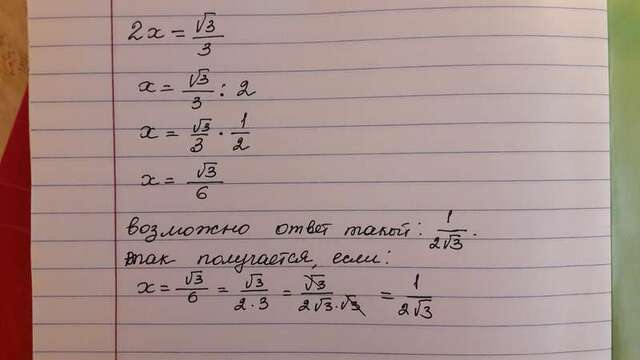 2x = √3/3
x = √3/3 : 2
x = √3/3 · 1/2
x = √3/6
возможно ответ такой: 1/2√3.
так получается, если:
x = √3/6 = √3/2·3 = √3/2√3·√3 = 1/2√3